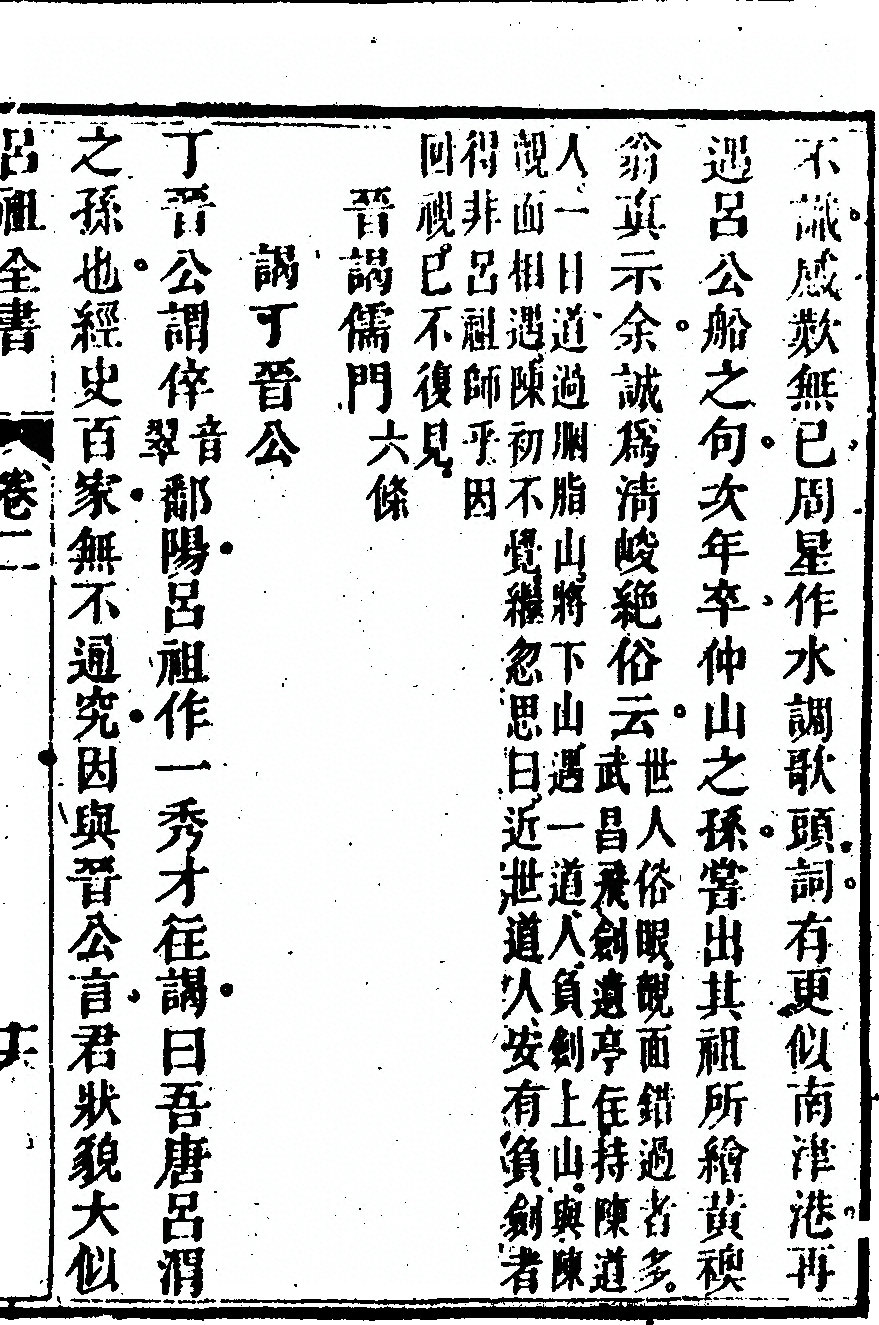 不識感歎無已周星作水調歌頭詞有更似南津港再
遇呂公船之句次年卒仲山之孫嘗出其祖所繪黃襖
翁真示余誠爲清峻絕俗云世人俗眼覿面錯過者多
武昌飛劍遺亭住持陳道
人一日道過胭脂山將下山遇一道人負劍上山與陳
覿面相遇陳初不覺繼忽思曰近世道人安有負劍者
得非呂祖師乎因
回視已不復見
晉謁儒門六條
謁丁晉公
丁晉公謂倅音翠鄱陽呂祖作一秀才往謁曰吾唐呂渭
之孫也經史百家無不通究因與晉公言君狀貌大似
呂祖全書 卷二